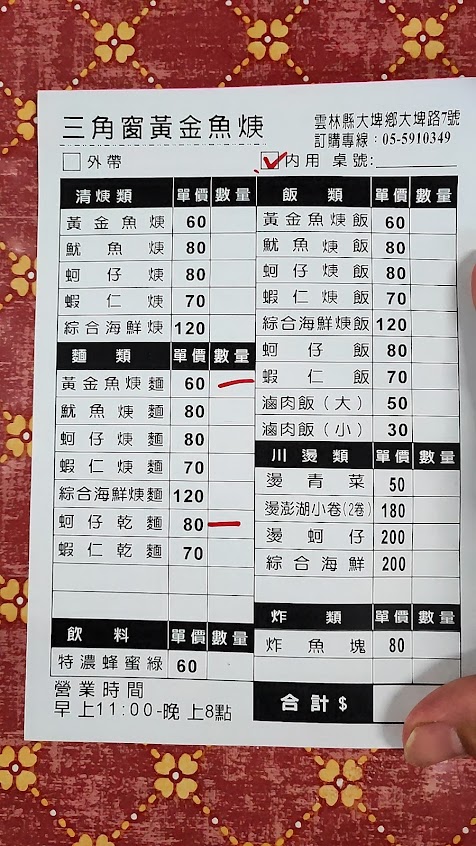 三角窗黃金魚焿
雲林縣大埤鄉大埤路7號
訂購專線：05-5910349
外帶
內用 桌號:
清焿類 單價 數量
黃金魚焿 60
魷魚焿 80
蚵仔焿 80
蝦仁焿 70
綜合海鮮焿 120
麵類 單價 數量
黃金魚焿麵 60
魷魚焿麵 80
蚵仔焿麵 80
蝦仁焿麵 70
綜合海鮮焿麵 120
蚵仔乾麵 80
蝦仁乾麵 70
飲料 單價 數量
特濃蜂蜜綠 60
營業時間
早上11:00-晚上8點
飯類 單價 數量
黃金魚焿飯 60
魷魚焿飯 80
蚵仔焿飯 80
蝦仁焿飯 70
綜合海鮮焿飯 120
蚵仔飯 80
蝦仁飯 70
滷肉飯(大) 50
滷肉飯(小) 30
川燙類 單價 數量
燙青菜 50
燙澎湖小卷(2卷) 180
燙蚵仔 200
綜合海鮮 200
炸類 單價 數量
炸魚塊 80
合計$